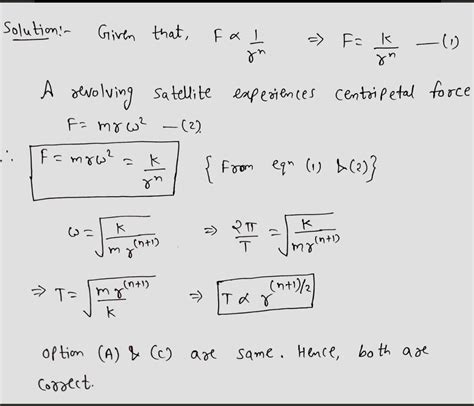 Solution:- Given that, F ∝ 1/rⁿ ⇒ F = k/rⁿ —(1)
A revolving satellite experiences centripetal force
F = mrω² —(2)
∴ F = mrω² = k/rⁿ { From eqn (1) & (2)}
ω = √(k/(m r^(n+1))) ⇒ 2π/T = √(k/(m r^(n+1)))
⇒ T = √(m r^(n+1)/k) ⇒ T ∝ r^(n+1)/2
option (A) & (C) are same. Hence, both are
correct.